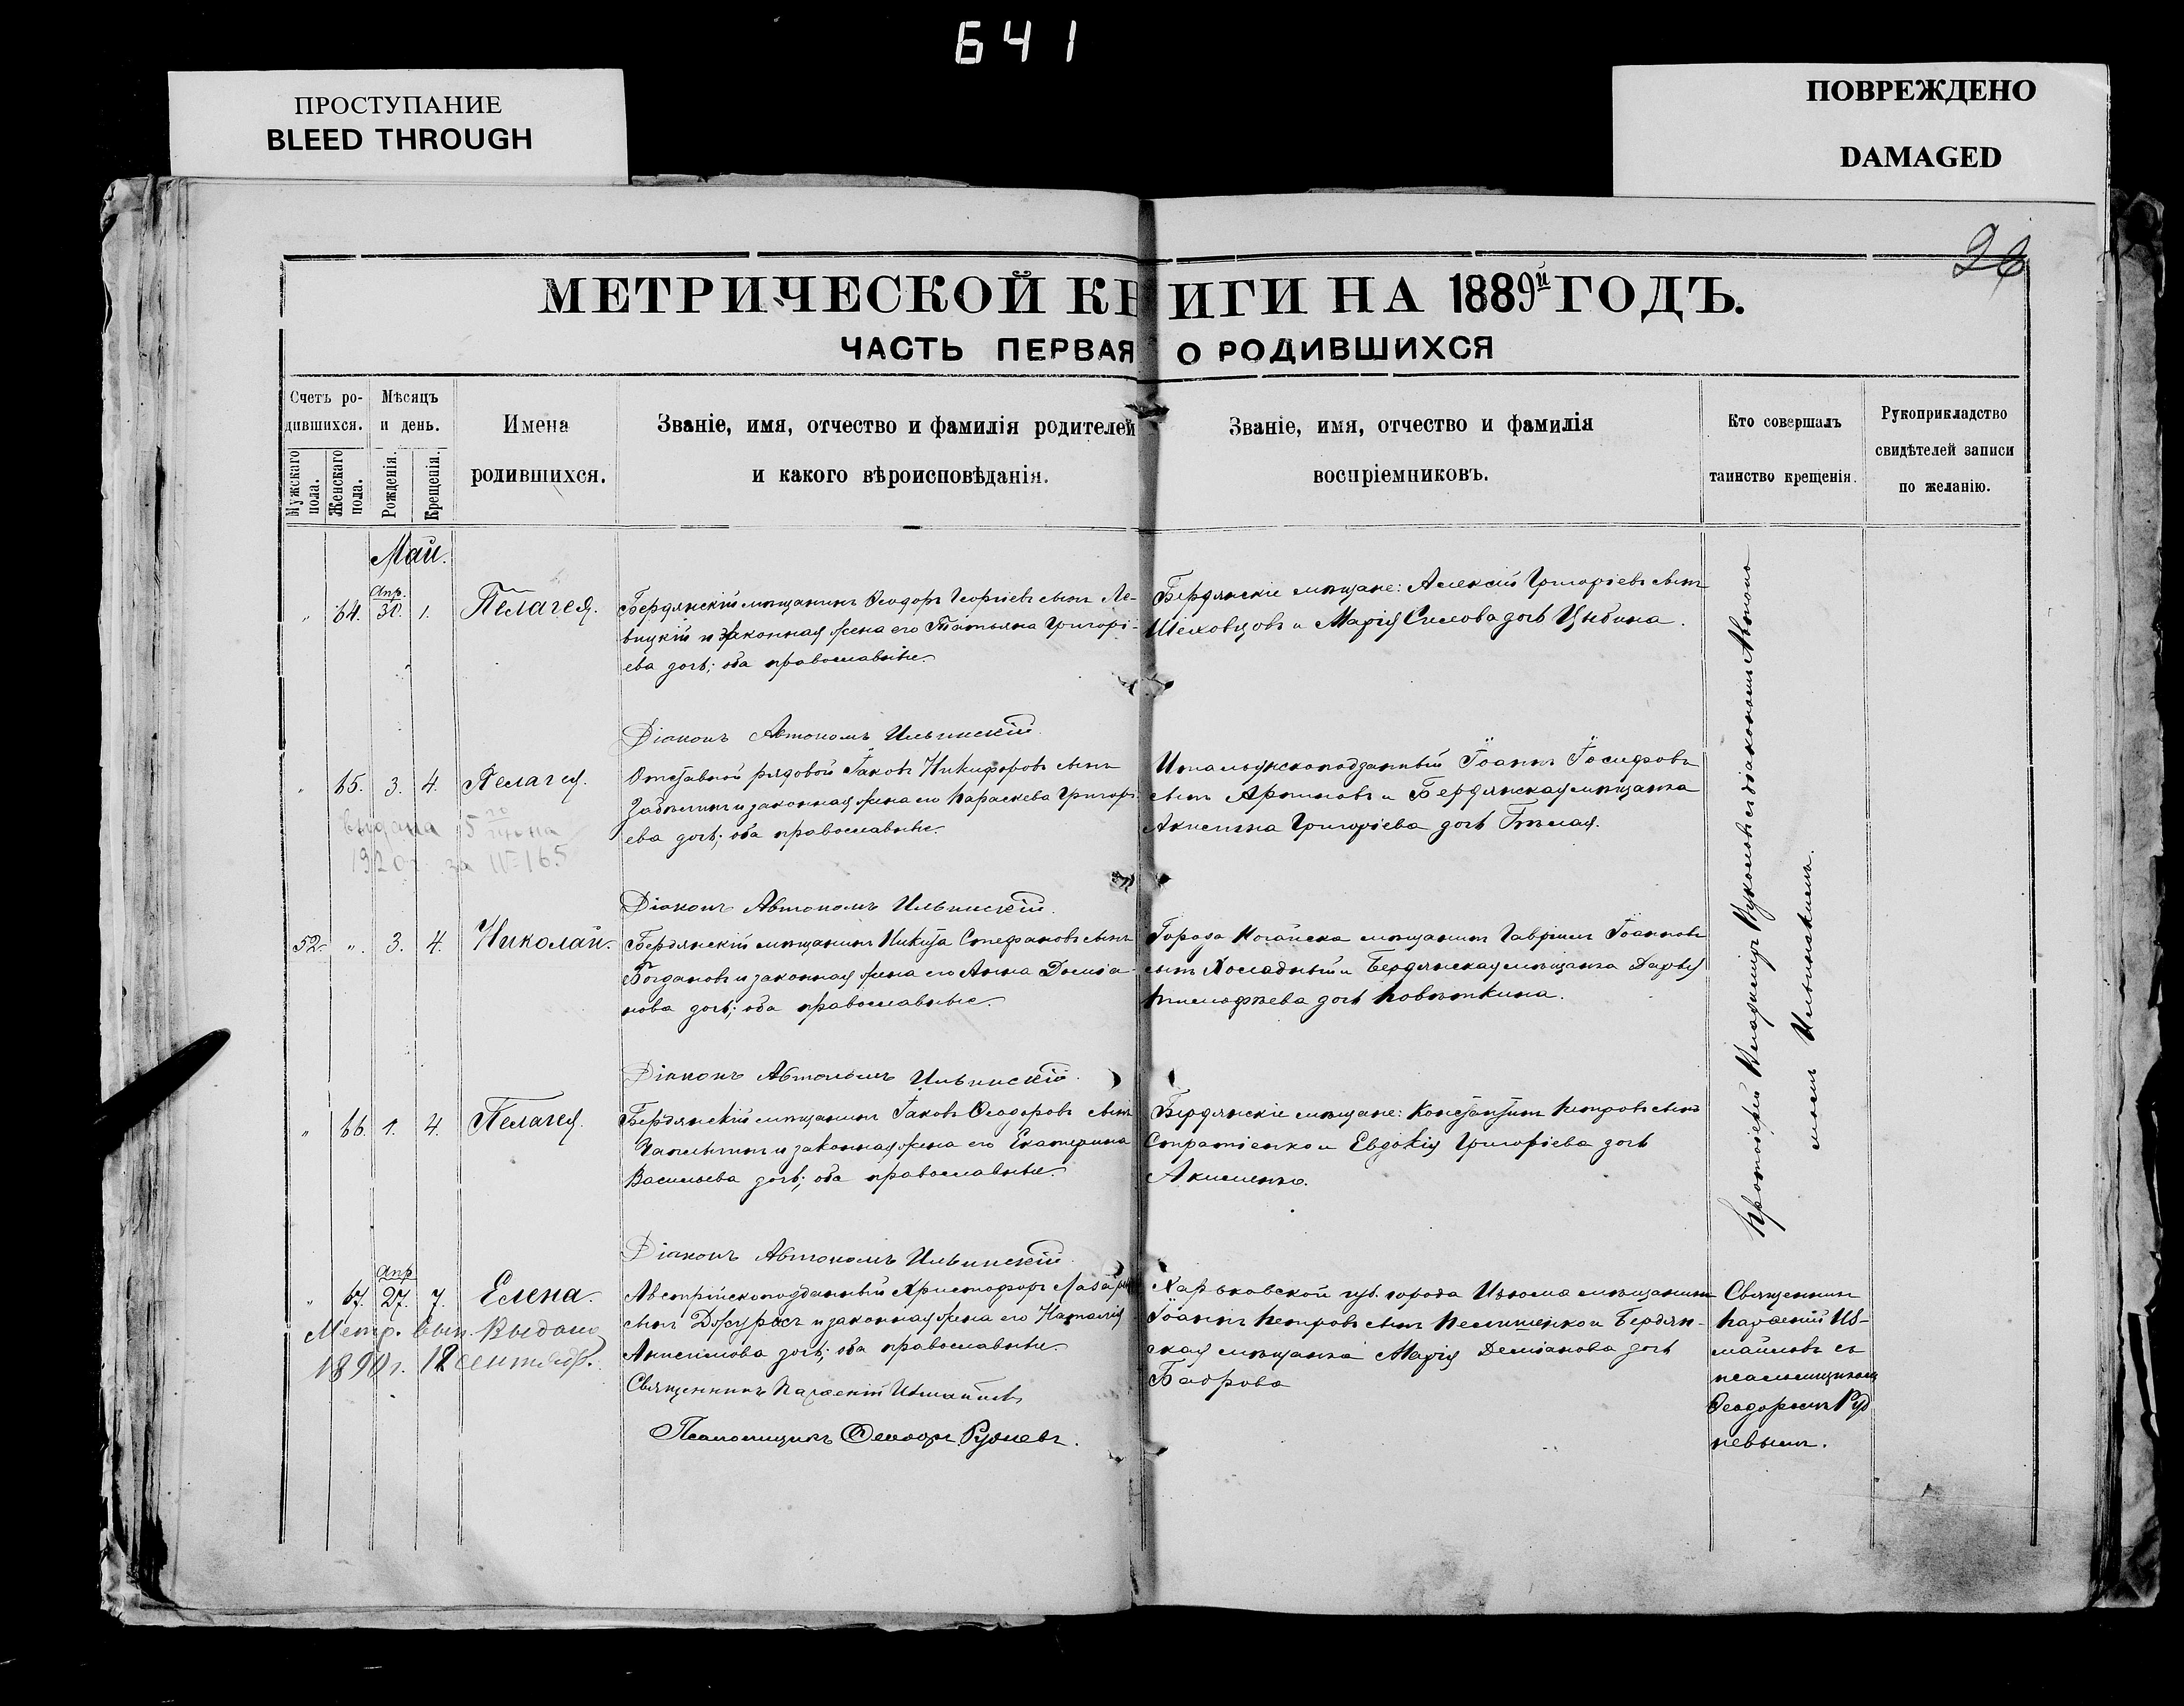 641
ПРОСТУПАНИЕ
BLEED THROUGH
ПОВРЕЖДЕНО
DAMAGED
26
МЕТРИЧЕСКОЙ КНИГИ НА 1889й ГОДЪ.
ЧАСТЬ ПЕРВАЯ О РОДИВШИХСЯ
Счетъ ро-
дившихся.
Мужскаго пола.
Женскаго пола.
Мѣсяцъ
и день.
Рожденія.
Крещенія.
Имена
родившихся.
Званіе, имя, отчество и фамилія родителей
и какого вѣроисповѣданія.
Званіе, имя, отчество и фамилія
воспріемниковъ.
Кто совершалъ
таинство крещенія.
Рукоприкладство
свидѣтелей записи
по желанію.
Май.
Апр.
" 64. 30. 1. Пелагея.
Бердянскій мѣщанинъ Ѳеодоръ Георгіевъ сынъ Ле-
вицкій и законная жена его Татьяна Григорі-
ева дочь; оба православные.
Бердянскіе мѣщане: Алексій Григоріевъ сынъ
Шелковцовъ и Марія Силова дочь Цыбина.
Діаконъ Автономъ Ильинскій.
" 65. 3. 4. Пелагея.
Отставной рядовой Іаковъ Никифоровъ сынъ
и законная жена его Параскева Григорі-
ева дочь; оба православные.
Итальянскоподданный Іоаннъ Іосифовъ
сынъ Артиновъ и Бердянская мѣщанка
Акилина Григоріева дочь Бѣлая.
выдана 15 го іюна
1920 г. за № 165
Діаконъ Автономъ Ильинскій.
52. " 3. 4. Николай.
Бердянскій мѣщанинъ Никита Стефановъ сынъ
Богдановъ и законная жена его Анна Даміа-
нова дочь; оба православные.
Города Ногайска мѣщанинъ Гавріилъ Іоанновъ
сынъ Холадный и Бердянская мѣщанка Дарья
Тимофѣева дочь Ковшткина.
Діаконъ Автономъ Ильинскій.
" 66. 1. 4. Пелагея.
Бердянскій мѣщанинъ Іаковъ Ѳеодоровъ сынъ
и законная жена его Екатерина
Васильева дочь; оба православные.
Бердянскіе мѣщане: Константинъ Петровъ сынъ
Стратіенко и Евдокія Григоріева дочь
Акименко.
Протоіерей Владиміръ Вуколовъ съ діакономъ Автоно-
момъ Ильинскимъ.
Діаконъ Автономъ Ильинскій.
Апр.
" 67. 27. 7. Елена.
Австрійскоподданный Христофоръ Лазаревъ
сынъ Дожурасъ и законная жена его Наталія
Анисимова дочь; оба православные.
Харьковской губ. города Изюма мѣщанинъ
Іоаннъ Петровъ сынъ Пелишенко и Бердян-
ская мѣщанка Марія Деміанова дочь
Баброва
Метр. вып. выдана
1890 г. 12 сентябр.
Священникъ Паисій Измайловъ
Псаломщикъ Ѳеодоръ Рудневъ.
Священникъ
Паисій Из-
майловъ съ
псаломщикомъ
Ѳеодоромъ Руд
невымъ.